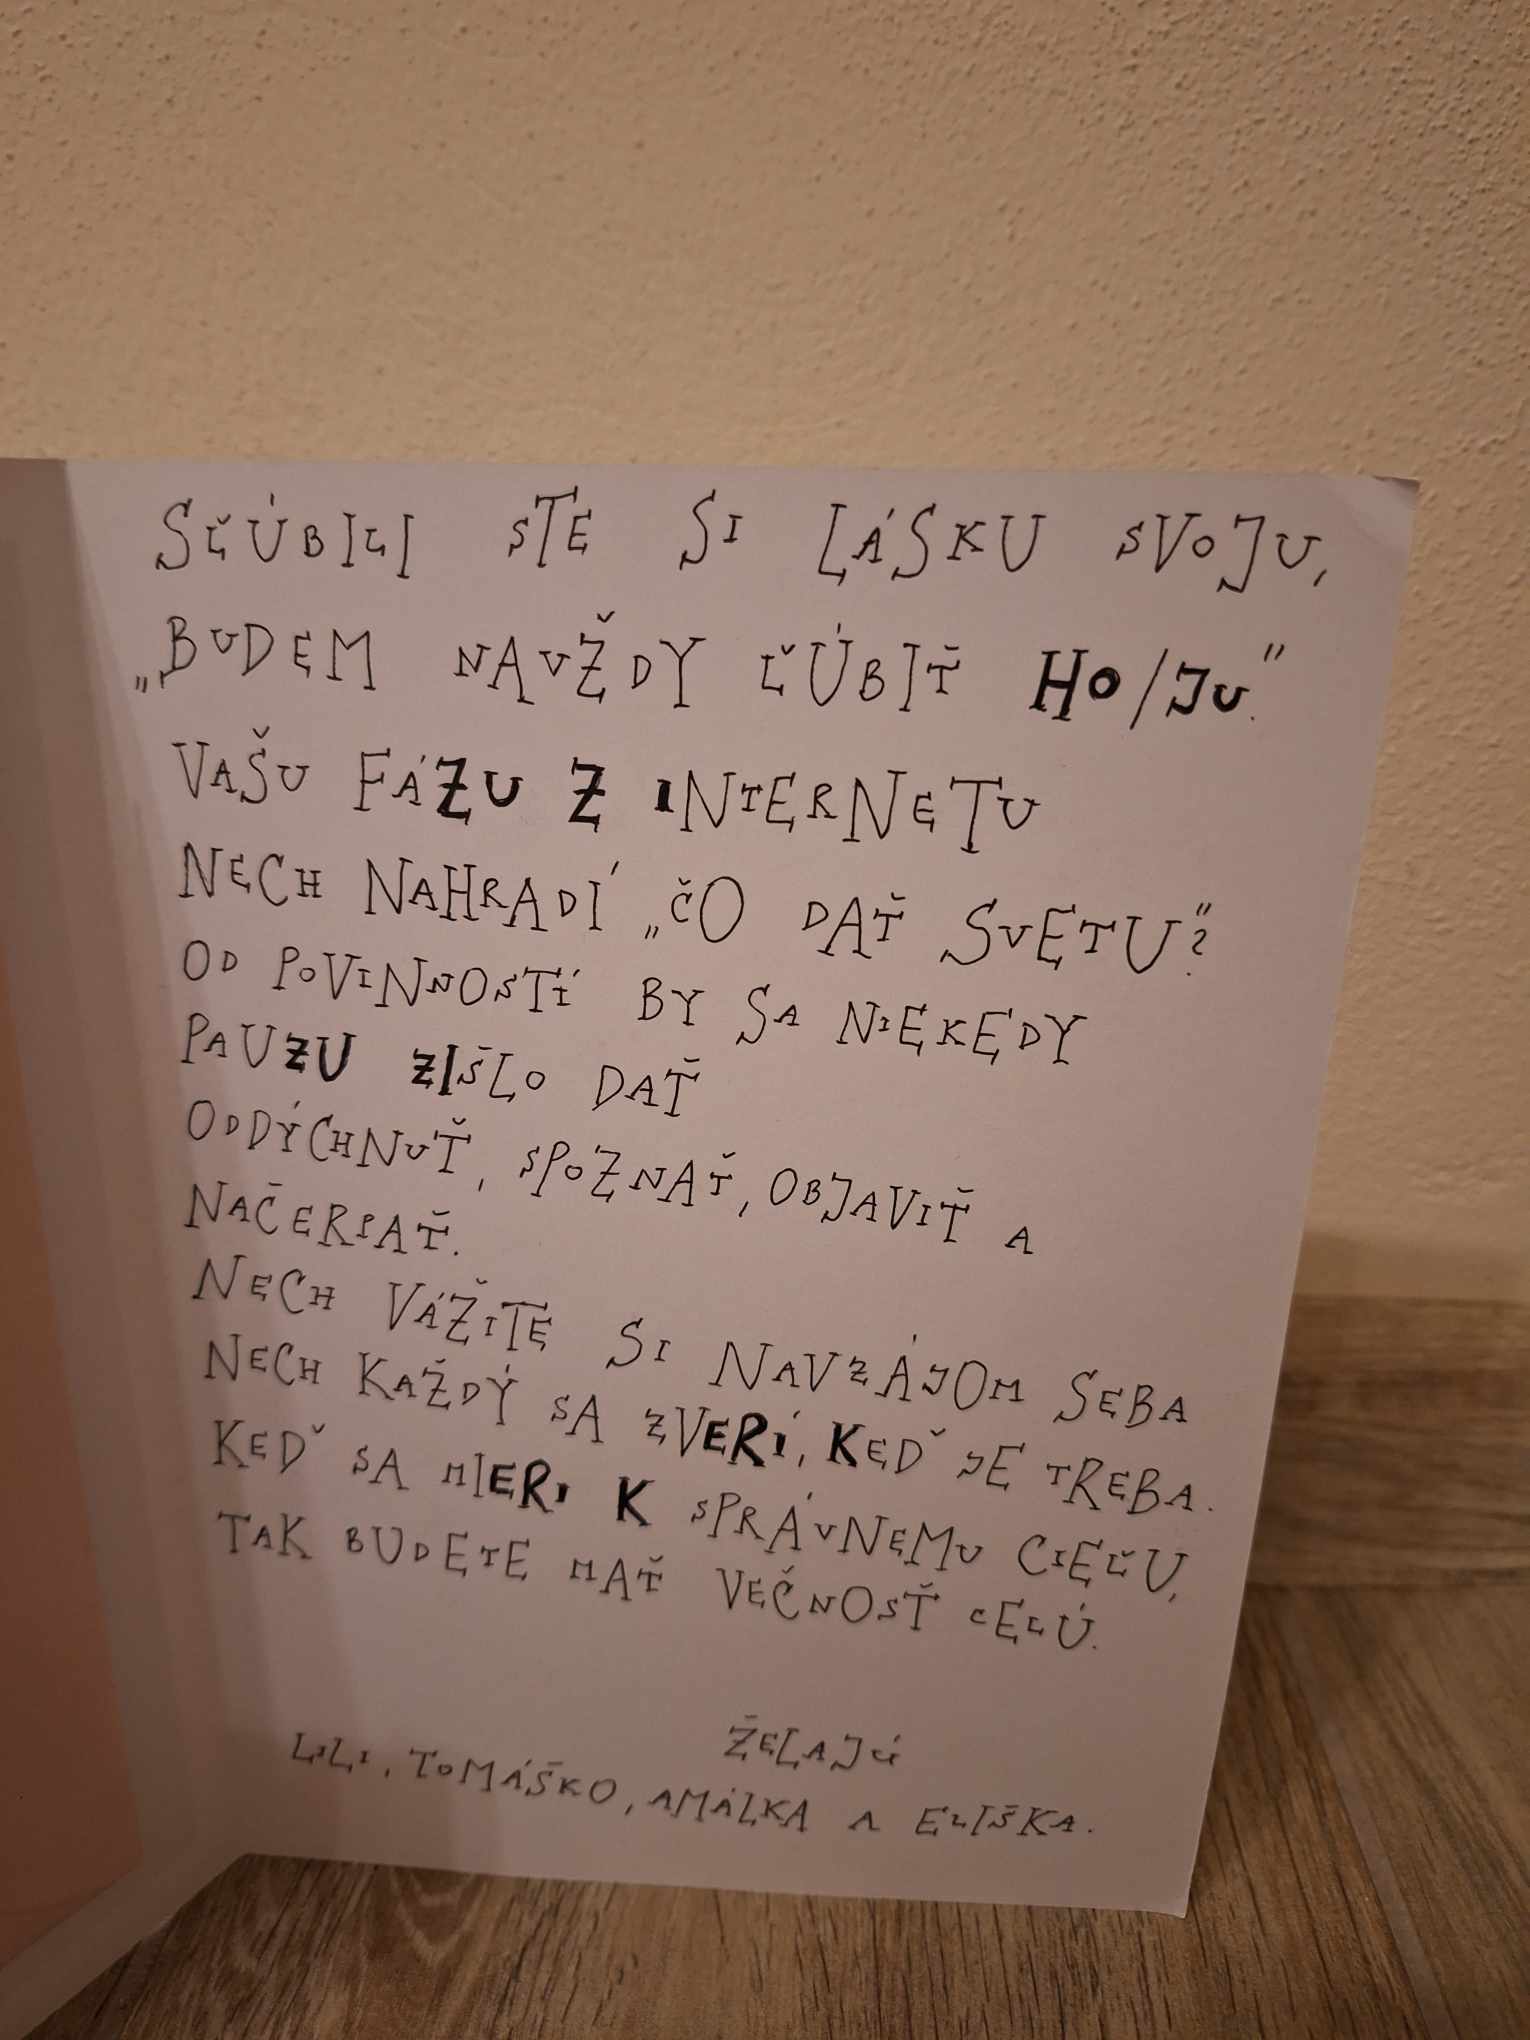 SĽÚBILI STE SI LÁSKU SVOJU,
„BUDEM NAVŽDY ĽÚBIŤ HO/JU."
VAŠU FÁZU Z INTERNETU
NECH NAHRADÍ „ČO DAŤ SVETU"?
OD POVINNOSTÍ BY SA NIEKEDY
PAUZU ZIŠLO DAŤ
ODDÝCHNUŤ, SPOZNAŤ, OBJAVIŤ A
NAČERPAŤ.
NECH VÁŽITE SI NAVZÁJOM SEBA
NECH KAŽDÝ SA ZVERÍ, KEĎ JE TREBA.
KEĎ SA MIERI K SPRÁVNEMU CIEĽU,
TAK BUDETE MAŤ VEČNOSŤ CELÚ.
ŽELAJÚ
LILI, TOMÁŠKO, AMÁLKA A ELIŠKA.